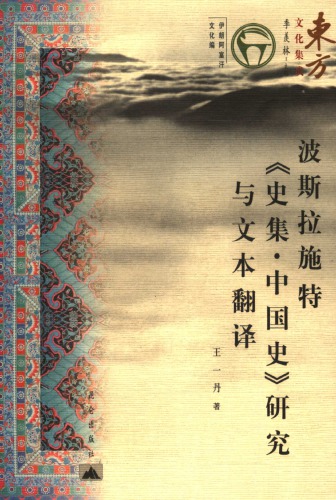 東方
文化集成
季羡林
伊朗阿富汗
文化编
波斯拉施特
《史集·中国史》研究
与文本翻译
王一丹 著
昆仑出版社